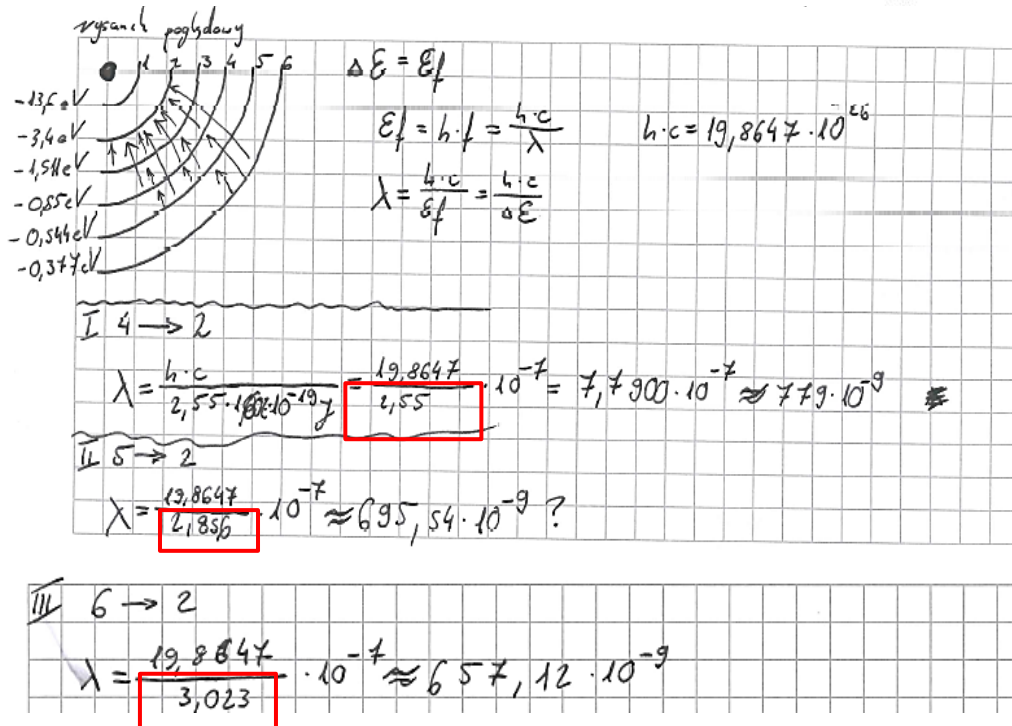 rysunek poglądowy
1 2 3 4 5 6
-13,6eV
-3,4eV
-1,511eV
-0,85eV
-0,544eV
-0,377eV
ΔE = Ef
Ef = h·f = h·c/λ
h·c = 19,8647·10^-26
λ = h·c/Ef = h·c/ΔE
I 4 → 2
λ = h·c/2,55· ·10^-19 J = 19,8647/2,55 ·10^-7 = 7,7900·10^-7 ≈ 779·10^-9
II 5 → 2
λ = 19,8647/2,856 ·10^-7 ≈ 695,54·10^-9 ?
III 6 → 2
λ = 19,8647/3,023 ·10^-7 ≈ 657,12·10^-9